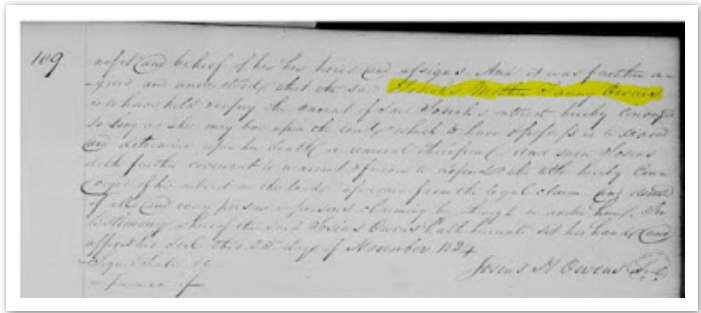 109
nefit and behoof of her her heirs and assigns. And it was further a-
-greed and understood that the said Josiah's Mother Fanny Owens
is to have held & enjoy the amount of said Josiah's interest hereby conveyed
so long as she may live upon the land, which to have & possess is to
and determine upon her death or removal therefrom. And said Josias
doth further covenant to warrant & forever to defend the title hereby con-
veyed of his interest in the lands aforesaid from the legal claim and demand
of all and every person or persons claiming by through or under him. In
testimony whereof the said Josias Owens hath hereunto set his hand and
affixed his seal this 28 day of November 1824
Josias H Owens
Signed Sealed &c
in presence of